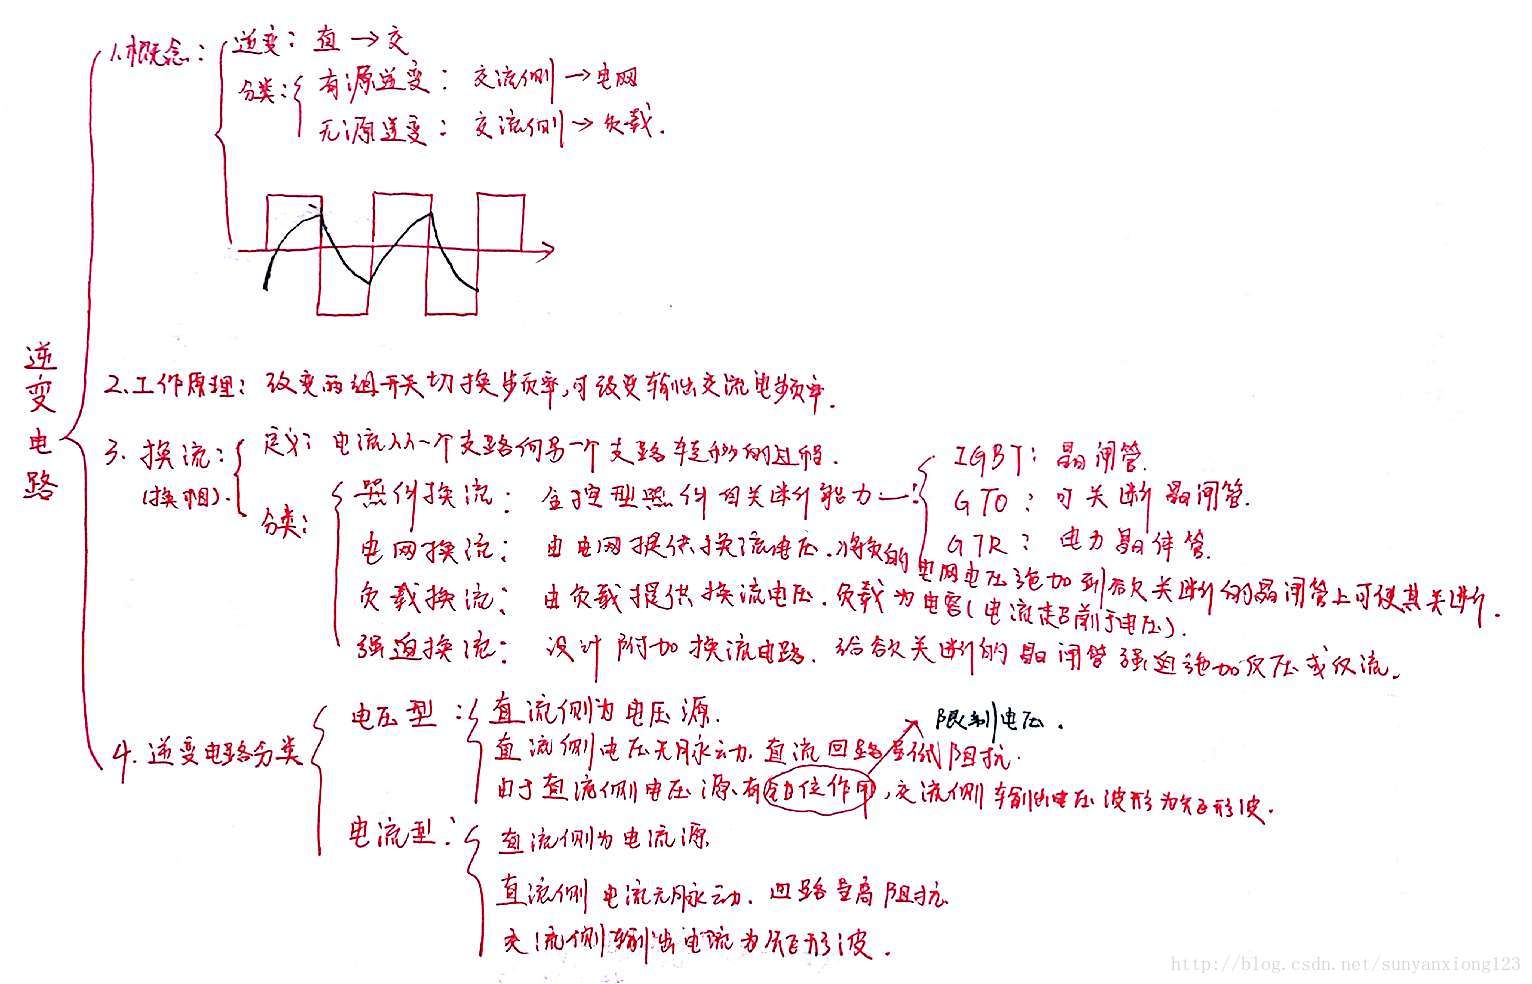 逆变电路
1.概念:
逆变: 直→交
分类:
有源逆变: 交流侧→电网
无源逆变: 交流侧→负载.
2.工作原理: 改变两组开关切换频率,可改变输出交流电频率.
3.换流:
(换相).
定义: 电流从一个支路向另一个支路转移的过程.
分类:
器件换流: 全控型器件自关断能力—
IGBT: 晶闸管.
GTO: 可关断晶闸管.
GTR: 电力晶体管.
电网换流: 由电网提供换流电压.将负的电网电压施加到欲关断的晶闸管上可使其关断.
负载换流: 由负载提供换流电压.负载为电容(电流超前于电压).
强迫换流: 设计附加换流电路.给欲关断的晶闸管强迫施加反压或反流.
4.逆变电路分类
电压型:
直流侧为电压源.
限制电压.
直流侧电压无脉动.直流回路呈低阻抗.
由于直流侧电压源有钳位作用,交流侧输出电压波形为矩形波.
电流型:
直流侧为电流源
直流侧电流无脉动.回路呈高阻抗
交流侧输出电流为矩形波.
http://blog.csdn.net/sunyanxiong123